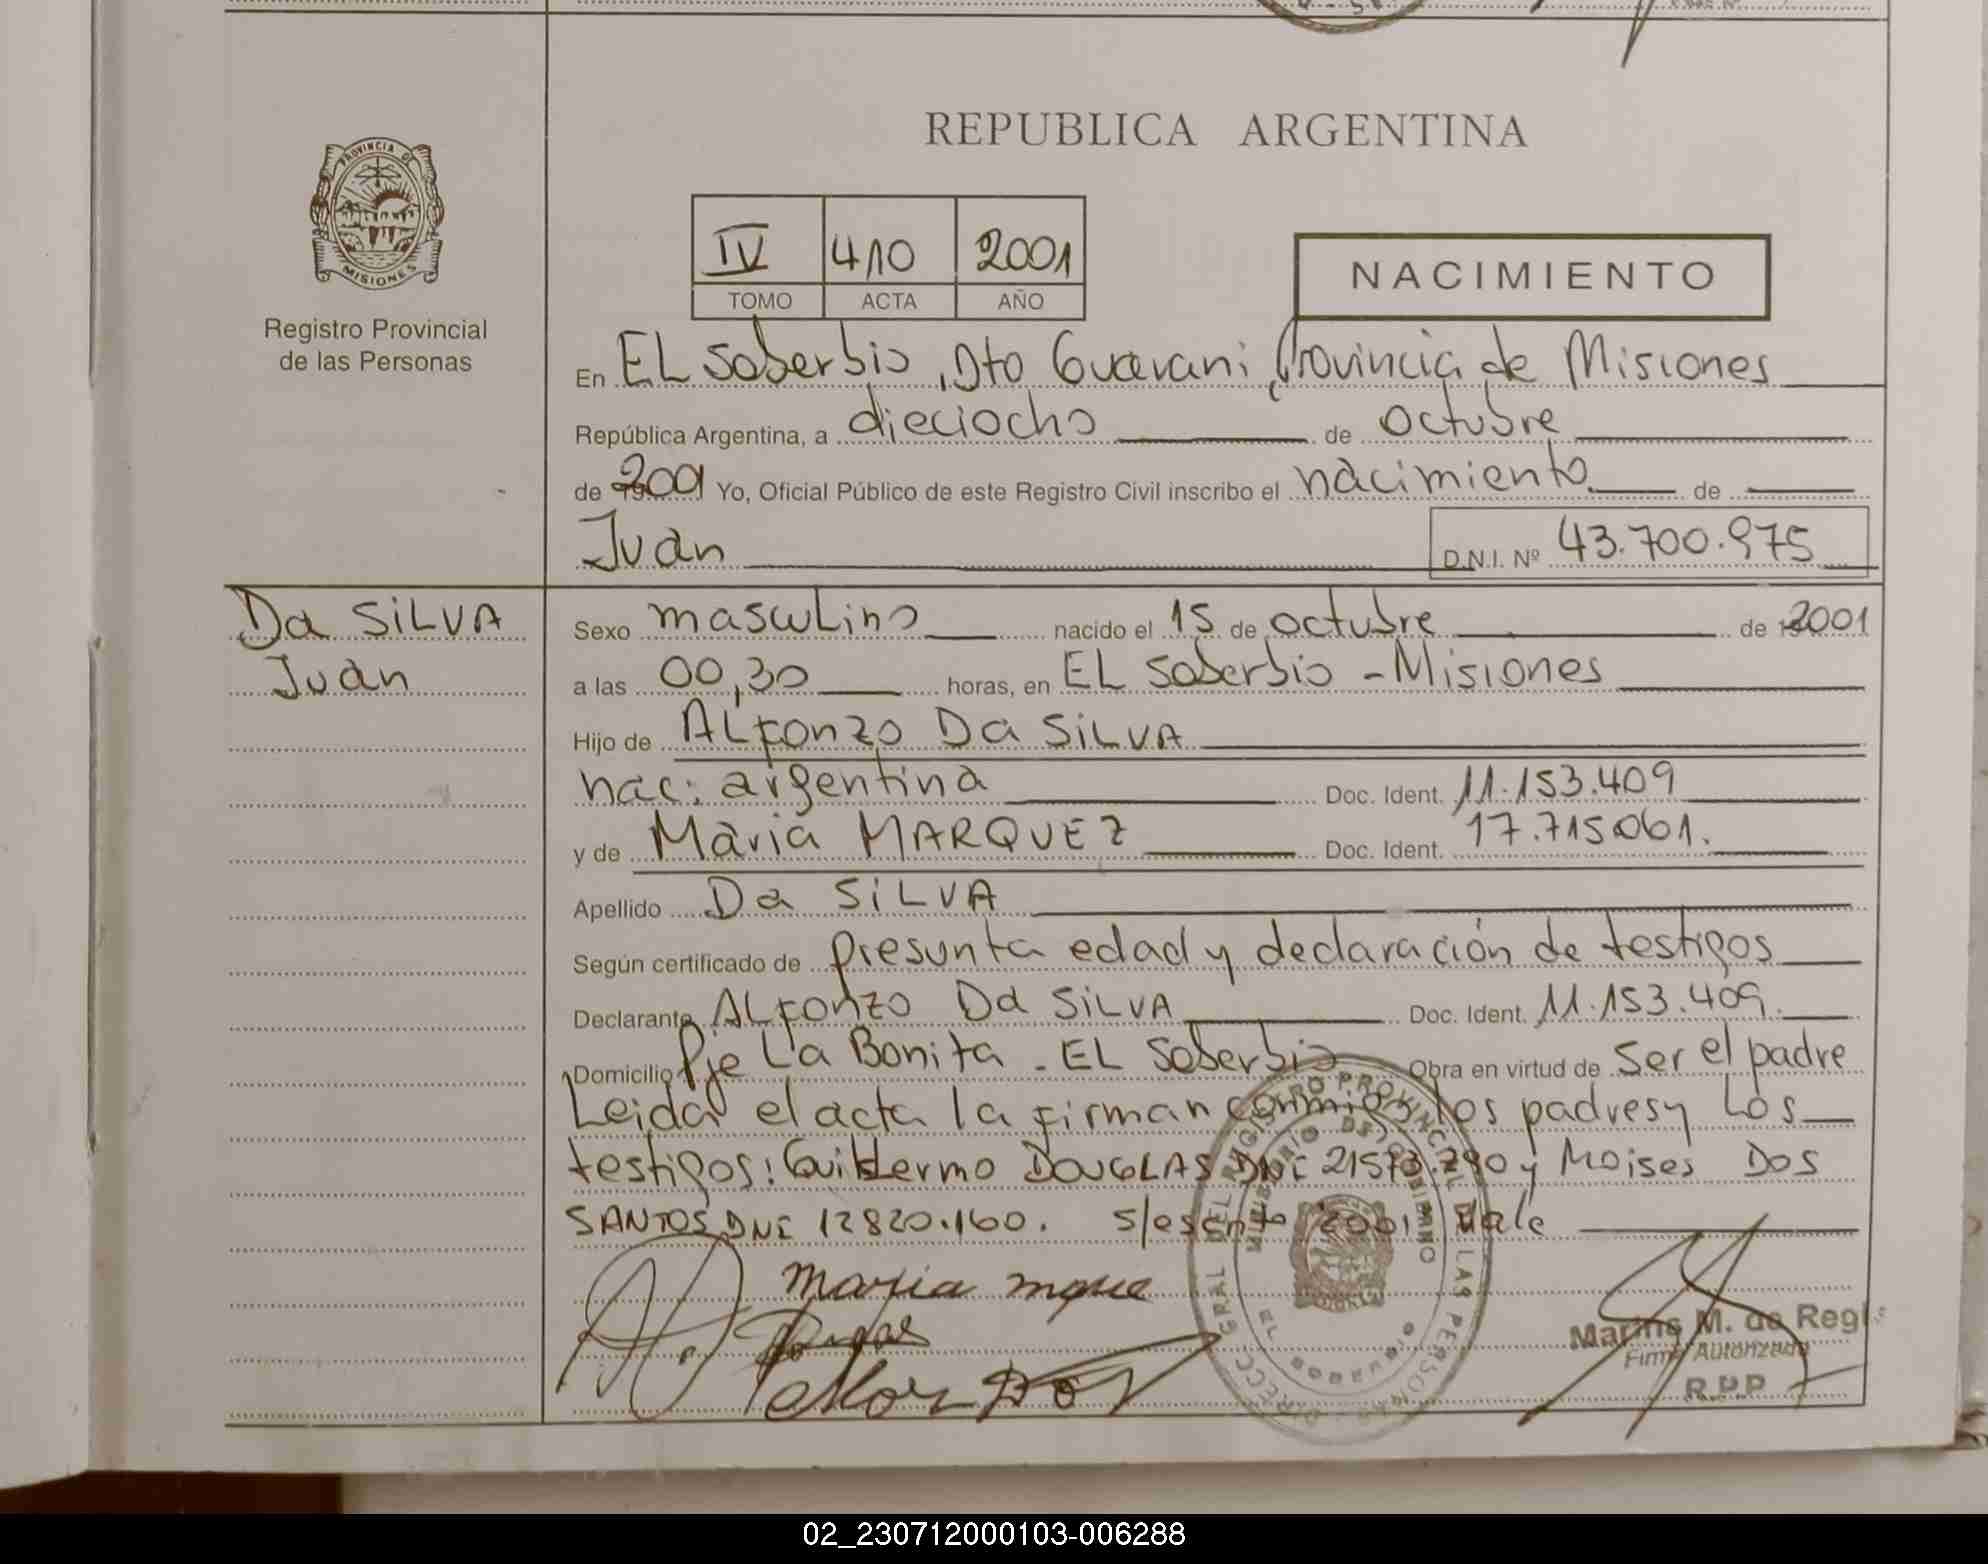 REPUBLICA ARGENTINA
PROVINCIA DE
MISIONES
Registro Provincial
de las Personas
IV 410 2001
TOMO ACTA AÑO
NACIMIENTO
En EL Soberbio, Dto Guarani Provincia de Misiones
República Argentina, a dieciocho de octubre
de 2001 Yo, Oficial Público de este Registro Civil inscribo el nacimiento de
Juan D.N.I. Nº 43.700.975
Da SiLVA
Juan
Sexo masculino nacido el 15 de octubre de 2001
a las 00,30 horas, en EL Soberbio - Misiones
Hijo de ALfonzo Da SiLVA
nac: argentina Doc. Ident. 11.153.409
y de Maria MARQUEZ Doc. Ident. 17.715061.
Apellido Da SiLVA
Según certificado de presunta edad y declaración de testigos
Declarante ALfonzo Da SiLVA Doc. Ident. 11.153.409.
Domicilio Pje La Bonita - EL Soberbio Obra en virtud de ser el padre
Leida el acta la firman conmigo los padres y los
testigos: Guillermo DOUGLAS DNI y Moises DOS
SANTOS DNI 12820.160. s/escrito 2001 Vale
Maria
M. de
Firma Autorizada
R.P.P
02_230712000103-006288